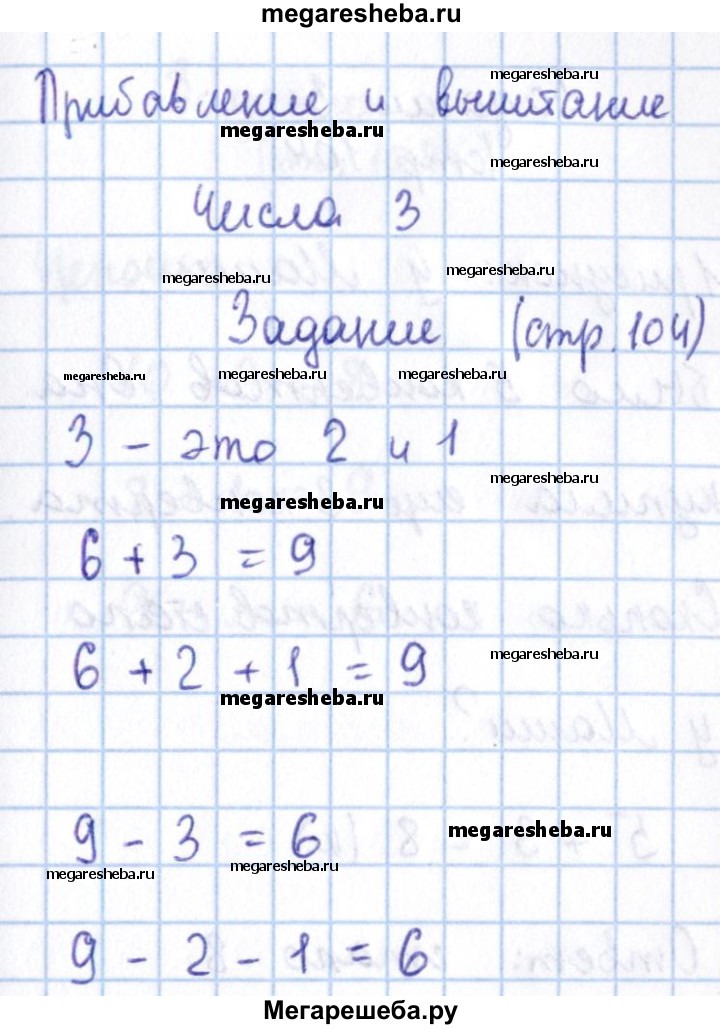 megaresheba.ru
megaresheba.ru
Прибавление и вычитание
megaresheba.ru
megaresheba.ru
Числа 3
megaresheba.ru
megaresheba.ru
Задание (стр. 104)
megaresheba.ru
megaresheba.ru
megaresheba.ru
3 - это 2 и 1
megaresheba.ru
megaresheba.ru
6 + 3 = 9
megaresheba.ru
6 + 2 + 1 = 9
megaresheba.ru
9 - 3 = 6
megaresheba.ru
megaresheba.ru
megaresheba.ru
9 - 2 - 1 = 6
Мегарешеба.ру